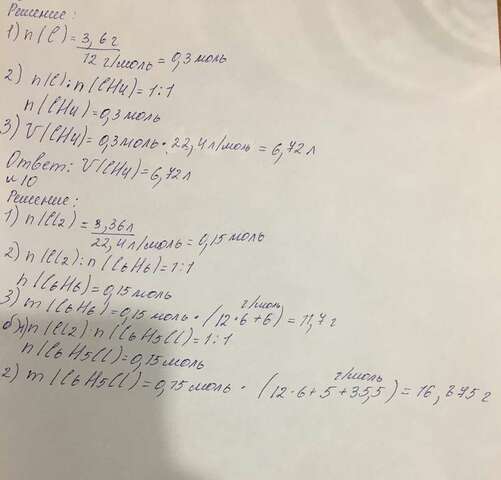 Решение:
1) n(C) = 3,6 г / 12 г/моль = 0,3 моль
2) n(C) : n(CH4) = 1:1
n(CH4) = 0,3 моль
3) V(CH4) = 0,3 моль · 22,4 л/моль = 6,72 л
Ответ: V(CH4) = 6,72 л
№10
Решение:
1) n(Cl2) = 3,36 л / 22,4 л/моль = 0,15 моль
2) n(Cl2) : n(C6H6) = 1:1
n(C6H6) = 0,15 моль
3) m(C6H6) = 0,15 моль · (12·6+6) г/моль = 11,7 г
б) 1) n(Cl2) : n(C6H5Cl) = 1:1
n(C6H5Cl) = 0,15 моль
2) m(C6H5Cl) = 0,15 моль · (12·6+5+35,5) г/моль = 16,875 г